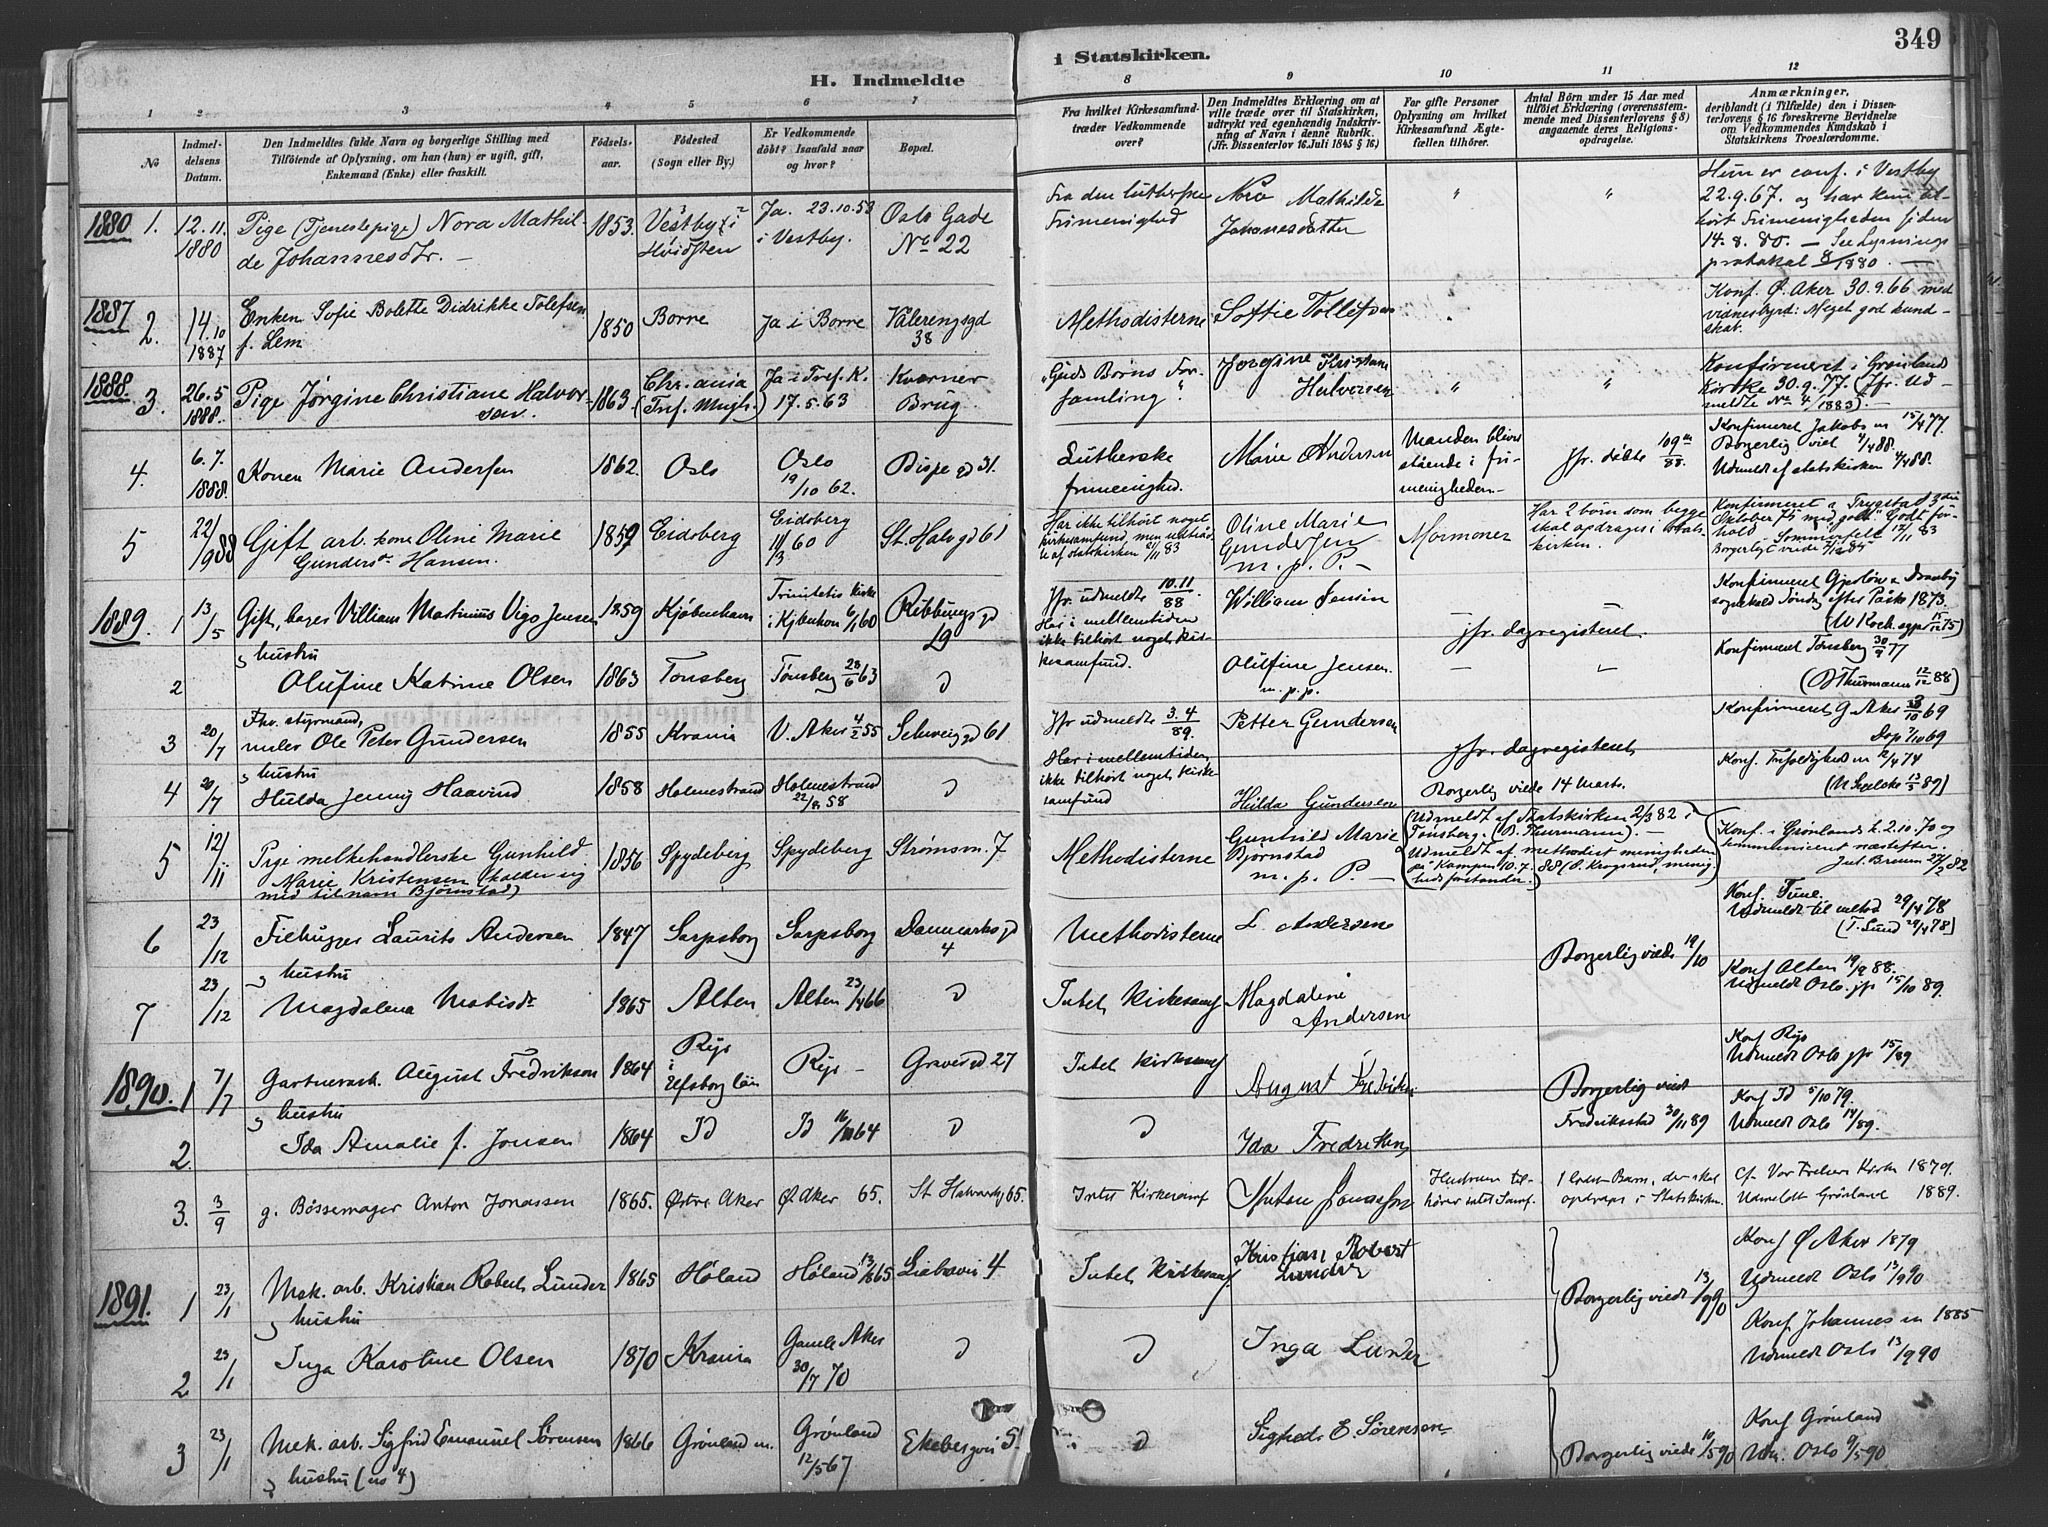 349
H. Indmeldte
i Statskirken.
1
2
3
4
5
6
7
8
9
10
11
12
No
Indmel-
delsens
Datum.
Den Indmeldtes fulde Navn og borgerlige Stilling med
Tilføiende af Oplysning, om han (hun) er ugift, gift,
Enkemand (Enke) eller fraskilt.
Fødsels-
aar.
Fødested
(Sogn eller By.)
Er Vedkommende
døbt? Isaafald naar
og hvor?
Bopæl.
Fra hvilket Kirkesamfund
træder Vedkommende
over?
Den Indmeldtes Erklæring om at
ville træde over til Statskirken,
udtrykt ved egenhændig Indskriv-
ning af Navn i denne Rubrik.
(Jfr. Dissenterlov 16 Juli 1845 § 16)
For gifte Personer
Oplysning om hvilket
Kirkesamfund Ægte-
fællen tilhører.
Antal Børn under 15 Aar med
tilføiet Erklæring (overensstem-
mende med Dissenterlovens § 8)
angaaende deres Religions-
opdragelse.
Anmærkninger,
deriblandt (i Tilfælde) den i Dissen-
terlovens § 16 foreskrevne Bevidnelse
om Vedkommendes Kundskab i
Statskirkens Troeslærdomme.
1880 1. 12.11. 1880
Pige (Tjenestepige) Nora Mathil-
de Johannesdtr. —
1853.
Vestby i
Hvidsten
Ja. 23.10.53
i Vestby.
Oslo Gade
No 22
Fra den lutherske
Frimenighed
Nora Mathilde
Johanesdatter
" "
Hun er conf. i Vestby
22.9.67. og har kun til-
hørt Frimenigheden siden
14.8.80. — See Lysnings
protokol 8/1880. —
1887 2. 14.10 1887
Enken Sofie Bolette Didrikke Tolefsen
f. Lem
1850
Borre
Ja i Borre
Vålerengsgd
38
Methodisterne
Soffie Tollefsen
"
Konf. Ø. Aker 30.9.66 med
vidnesbyrd: Meget god kund-
skab.
1888 3. 26.5 1888.
Pige Jørgine Christiane Halvor-
sen.
1863.
Chr.ania
(Tref. Mngh.)
Ja i Tref. K.
17.5.63
Kværner
Brug.
"Guds Børns For-
samling"
Jørgine Kristiane
Halvorsen
" "
Konfirmeret i Grønlands
Kirke 30.9.77. (Jfr. Ud-
meldte No 4/1883). —
4. 6.7. 1888.
Konen Marie Andersen
1862.
Oslo
Oslo
19/10 62.
Bispegd 31.
Lutherske
frimenighed.
Marie Andersen
Manden bliver
stående i fri-
menigheden.
jfr. døbte 109/88.
Konfirmeret Jakobs m 15/4 77.
Borgerlig viet 4/4 88.
Udmeldt af statskirken 4/4 88.
5 22/9 88
Gift arb. kone Oline Marie
Gunders. Hansen.
1859
Eidsberg
Eidsberg
11/3 60
St. Halvgd 61
Har ikke tilhørt noget
kirkesamfund, men udtrådt
af statskirken 2/11 83
Oline Marie
Gundersen
m. p. P. —
Mormoner
Har 2 børn som begge
skal opdrages i stats-
kirken.
Konfirmeret i Trygstad 3die
Oktober 75 med godt. Godt for-
hold Sommerfelt 12/11 83
Borgerligt viede
1889. 1 13/5
Gift, bager Villiam Martinius Vigo Jensen
1859
Kjøbenhavn
Trinitatis kirke
i Kjøbenhavn 6/1 60
Ribbungsgd
19
Jfr. udmeldte 10.11/88
Har i mellemtiden
ikke tilhørt noget kir-
kesamfund.
William Jensen
jfr. dagregisteret.
søgnekald Søndag efter Påske 1873.
2
hustru
Olufine Katrine Olsen
1863
Tønsberg
Tønsberg 28/6 63
D
Olufine Jensen
m. p. p.
Konfirmeret Tønsberg 30/9 77
(B Thurmann 12/12 88)
3 20/7
Fhv. styrmand,
Ole Peter Gundersen
1855
Krania
V. Aker 4/2 55
Schweigd 61
Jfr udmeldte 3.4/89.
Har i mellemtiden
ikke tilhørt noget kirke-
samfund
Petter Gundersen
jfr. dagregisteret
Konfirmeret G. Aker 3/10 69
4 20/7
hustru
Hulda Jenny Haavind
1858
Holmestrand
Holmestrand
22/8. 58
D
Hulda Gundersen
Borgerlig viede 14 Marts.
Konf. Trefoldigheds m 12/4 74
5 12/11
Pige melkehandlerske Gunhild
Marie Kristensen (kalder sig
med tilnavn Bjørnstad)
1856
Spydeberg
Spydeberg
Strømsv. 7
Methodisterne
Gunhild Marie
Bjørnstad
m. p. P. —
(Udmeldt af Statskirken 2/3 82 i
Tønsberg. (B. Thurmann). —
Udmeldt af methodist menigheden
på Kampen 10.7.88 (O. Krogsrud, menig-
hedsforstander.
Konf. i Grønlands k. 2.10.70 og
kommuniceret næstefter.
Jul. Bruun 27/2 82
6 23/12
Filhugger Laurits Andersen
1847
Sarpsborg
Sarpsborg
Danmarksgd
4
Methodisterne
L. Andersen
Borgerlig viede 19/10
Konf. Tune.
Udmeldt til metod 29/4 78
(T. Lund 29/4 78)
7 23/12
hustru
Magdalena Matisdr
1865
Alten
Alten 23/4 66
D
Intet Kirkesamf
Magdaline
Andersen
Konf Alten 19/9 88.
Udmeldt Oslo jfr 15/10 89.
1890. 1 7/7
Gartnerarb. August Fredrikson
1864
Ryr
i
Elfsborg län
Ryr —
Graversgd 27
Intet kirkesamf
August Fredriksen
Borgerlig viedt
Fredriksstad 30/11 89
Konf Ryr
Udmeldt Oslo jfr 15/89
2
hustru
Ida Amalie f. Jonsen
1864
Id
Id 16/11 64
D
D
Ida Fredriksen
Konf Id 5/10 79.
Udmeldt Oslo 14/89.
3. 3/9
g. Bøssemager Anton Jonassen
1865.
Østre Aker
Ø. Aker 65.
St Halvardsg. 65.
Intet Kirkesamf
Anton Jonassen
Hustruen til-
hører intet Samf.
opdrages i Statskirken.
Cf. Vor Frelsers Kirke 1879.
Udmeldt Grønland 1889.
1891. 1 23/1
Mek. arb. Kristian Robert Lunder
1865
Høland
Høland 13/8 65
Liabrovei 4
Intet Kirkesamf
Kristian Robert
Lunder
Borgerlig viedt 13/9 90
Konf Ø Aker 1879
Udmeldt Oslo 13/9 90
2 23/1
hustru
Inga Karoline Olsen
1870
Krania
Gamle Aker
30/7 70
D
D
Inga Lunder
Konf. Johannes m 1885
Udmeldt Oslo 13/9 90
3 23/1
Mek. arb. Sigfrid Emanuel Sørensen
hustru (no 4)
1866
Grønland m.
Grønland
12/5 67
Ekebergvei 5.
D
Sigfred. E. Sørensen
Borgerlig viede 10/5 90
Konf Grønland
Udm. Oslo 9/5 90